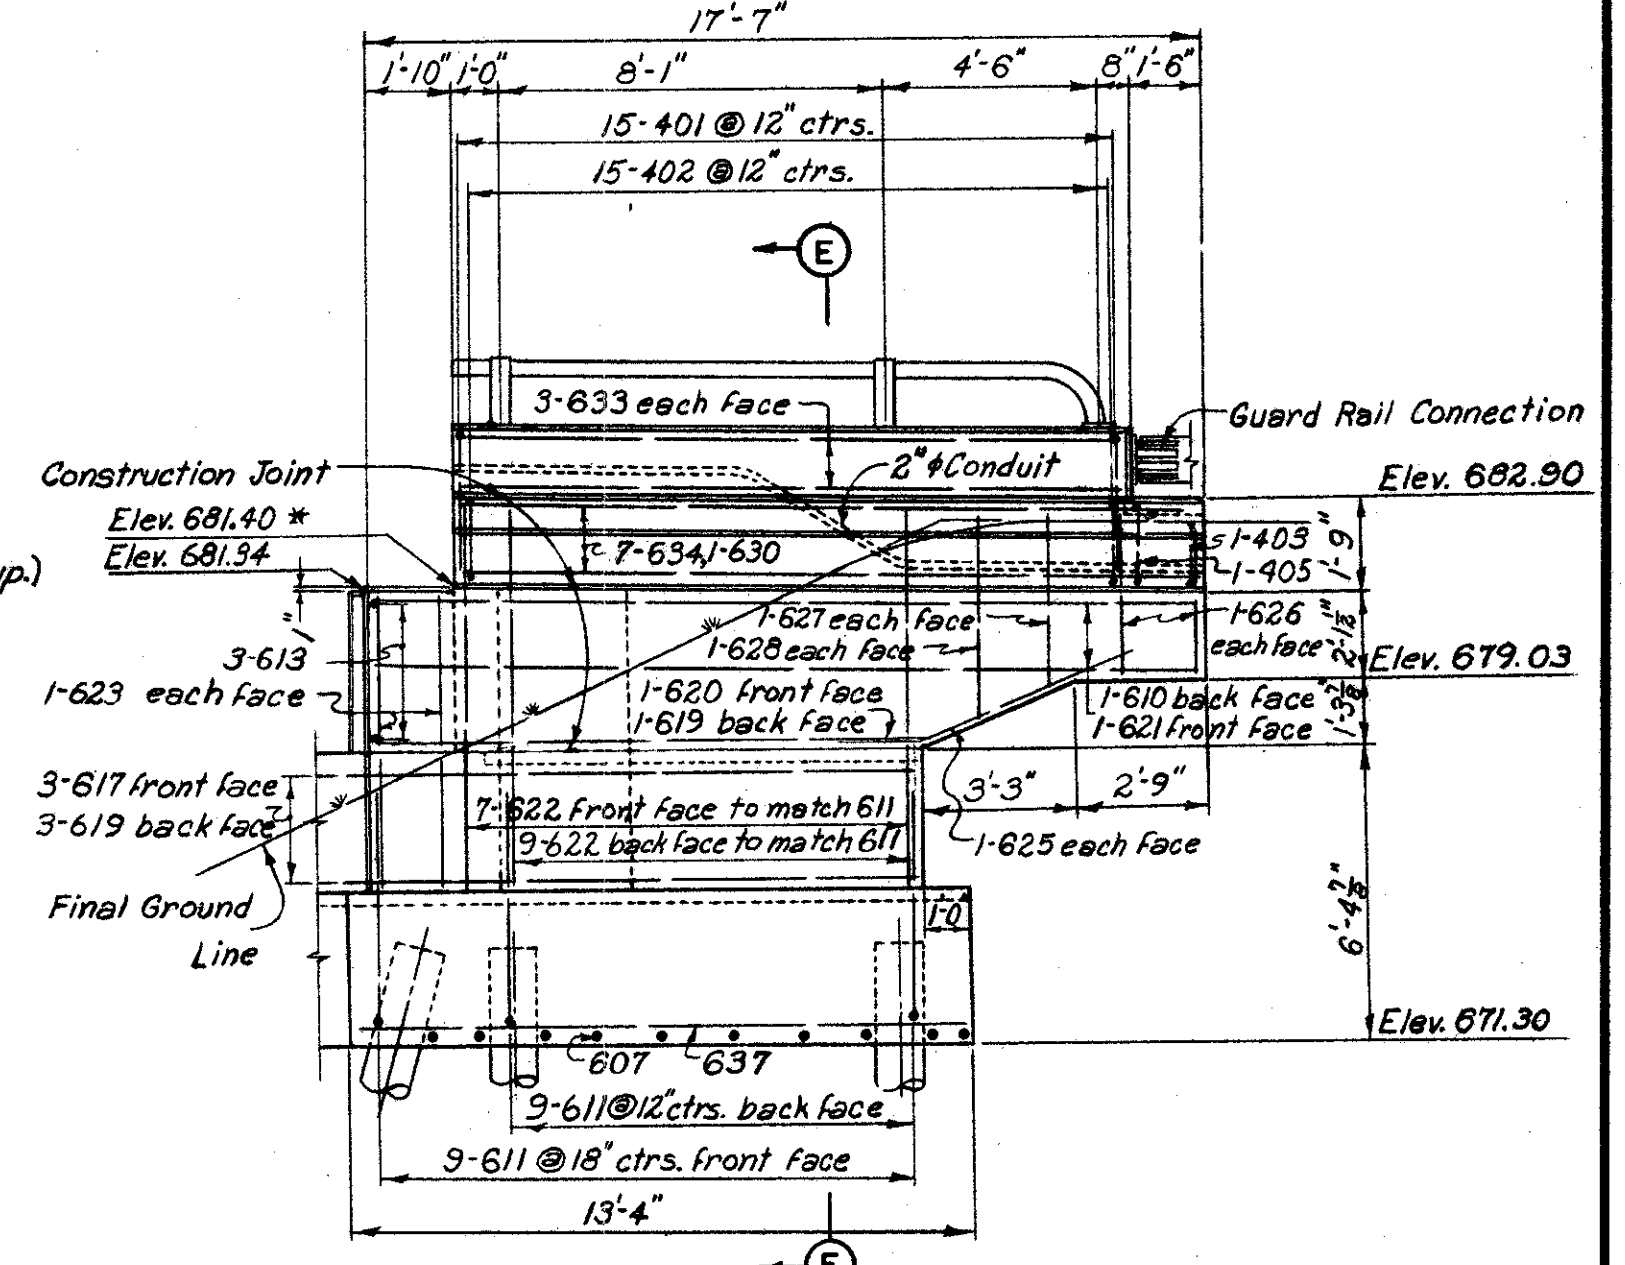 17'-7"
1'-10" 1'-0" 8'-1" 4'-6" 8" 1'-6"
15-401 @ 12" ctrs.
15-402 @ 12" ctrs.
E
3-633 each face
Guard Rail Connection
Construction Joint
2"φ Conduit
Elev. 682.90
Elev. 681.40 *
Elev. 681.34
7-634, 1-630
1-403
1-405
1'-9"
1"
1-627 each face
1-628 each face
1-626
each face
2'-1 1/2"
Elev. 679.03
3-613
1-623 each face
1-620 front face
1-619 back face
1-610 back face
1-621 front face
1'-3 7/8"
3-617 front face
3-619 back face
3'-3"
2'-9"
7-622 front face to match 611
9-622 back face to match 611
1-625 each face
Final Ground
Line
1'-0
6'-4 7/8"
Elev. 671.30
607
637
9-611 @ 12" ctrs. back face
9-611 @ 18" ctrs. front face
13'-4"
E